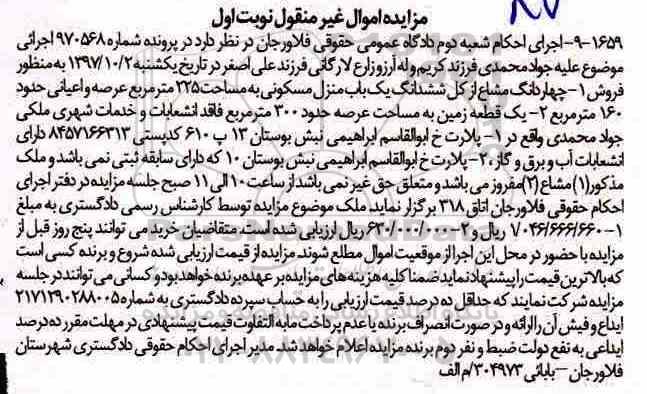 مزایده اموال غیر منقول نوبت اول
۱۶۵۹-۹- اجرای احکام شعبه دوم دادگاه عمومی حقوقی فلاورجان در نظر دارد در پرونده شماره ۹۷۰۵۶۸ اجرائی
موضوع علیه جواد محمدی فرزند کریم وله آرزو زارع لارگانی فرزند علی اصغر در تاریخ یکشنبه ۱۳۹۷/۱۰/۲ به منظور
فروش ۱- چهاردانگ مشاع از کل ششدانگ یک باب منزل مسکونی به مساحت ۲۲۵ مترمربع عرصه و اعیانی حدود
۱۶۰ مترمربع ۲- یک قطعه زمین به مساحت عرصه حدود ۳۰۰ مترمربع فاقد انشعابات و خدمات شهری ملکی
جواد محمدی واقع در ۱- پلارت خ ابوالقاسم ابراهیمی نبش بوستان ۱۳ پ ۶۱۰ کدپستی ۸۴۵۷۱۶۶۳۱۳ دارای
انشعابات آب و برق و گاز ۲۰- پلارت خ ابوالقاسم ابراهیمی نبش بوستان ۱۰ که دارای سابقه ثبتی نمی باشد و ملک
مذکور(۱) مشاع (۲)مفروز می باشد و متعلق حق غیر نمی باشد از ساعت ۱۰ الی ۱۱ صبح جلسه مزایده در دفتر اجرای
احکام حقوقی فلاورجان اتاق ۳۱۸ برگزار نماید ملک موضوع مزایده توسط کارشناس رسمی دادگستری به مبلغ
۱-۱/۰۴۶/۶۶۶/۶۶۰ ریال و ۲-۶۳۰/۰۰۰/۰۰۰ ریال ارزیابی شده است. متقاضیان خرید می توانند پنج روز قبل از
مزایده با حضور در محل این اجرا از موقعیت اموال مطلع شوند. مزایده از قیمت ارزیابی شده شروع و برنده کسی است
که بالاترین قیمت را پیشنهاد نماید ضمنا کلیه هزینه های مزایده بر عهده برنده خواهد بود و کسانی می توانند در جلسه
مزایده شرکت نمایند که حداقل ده درصد قیمت ارزیابی را به حساب سپرده دادگستری به شماره ۲۱۷۱۲۹۰۲۸۸۰۰۵
ایداع و فیش آن را ارائه و در صورت انصراف برنده یا عدم پرداخت مابه التفاوت قیمت پیشنهادی در مهلت مقرر ده درصد
ایداعی به نفع دولت ضبط و نفر دوم برنده مزایده اعلام خواهد شد. مدیر اجرای احکام حقوقی دادگستری شهرستان
فلاورجان – بابائی ۳۰۴۹۷۳/م الف